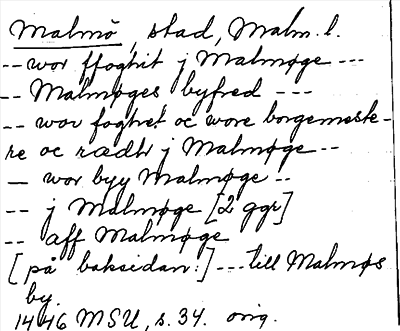 Malmö, stad, Malm. l.
-- wor ffogtit j Malmøge ---
-- Malmøges byfred ---
-- wor fogtret oc wore borgemeste-
re oc rædh j Malmøge --
— wor byy Malmøge --
-- j Malmøge [2 ggr]
-- aff Malmøge
[på baksidan:] --- till Malmøs
by.
1446 MSU, s. 34. orig.